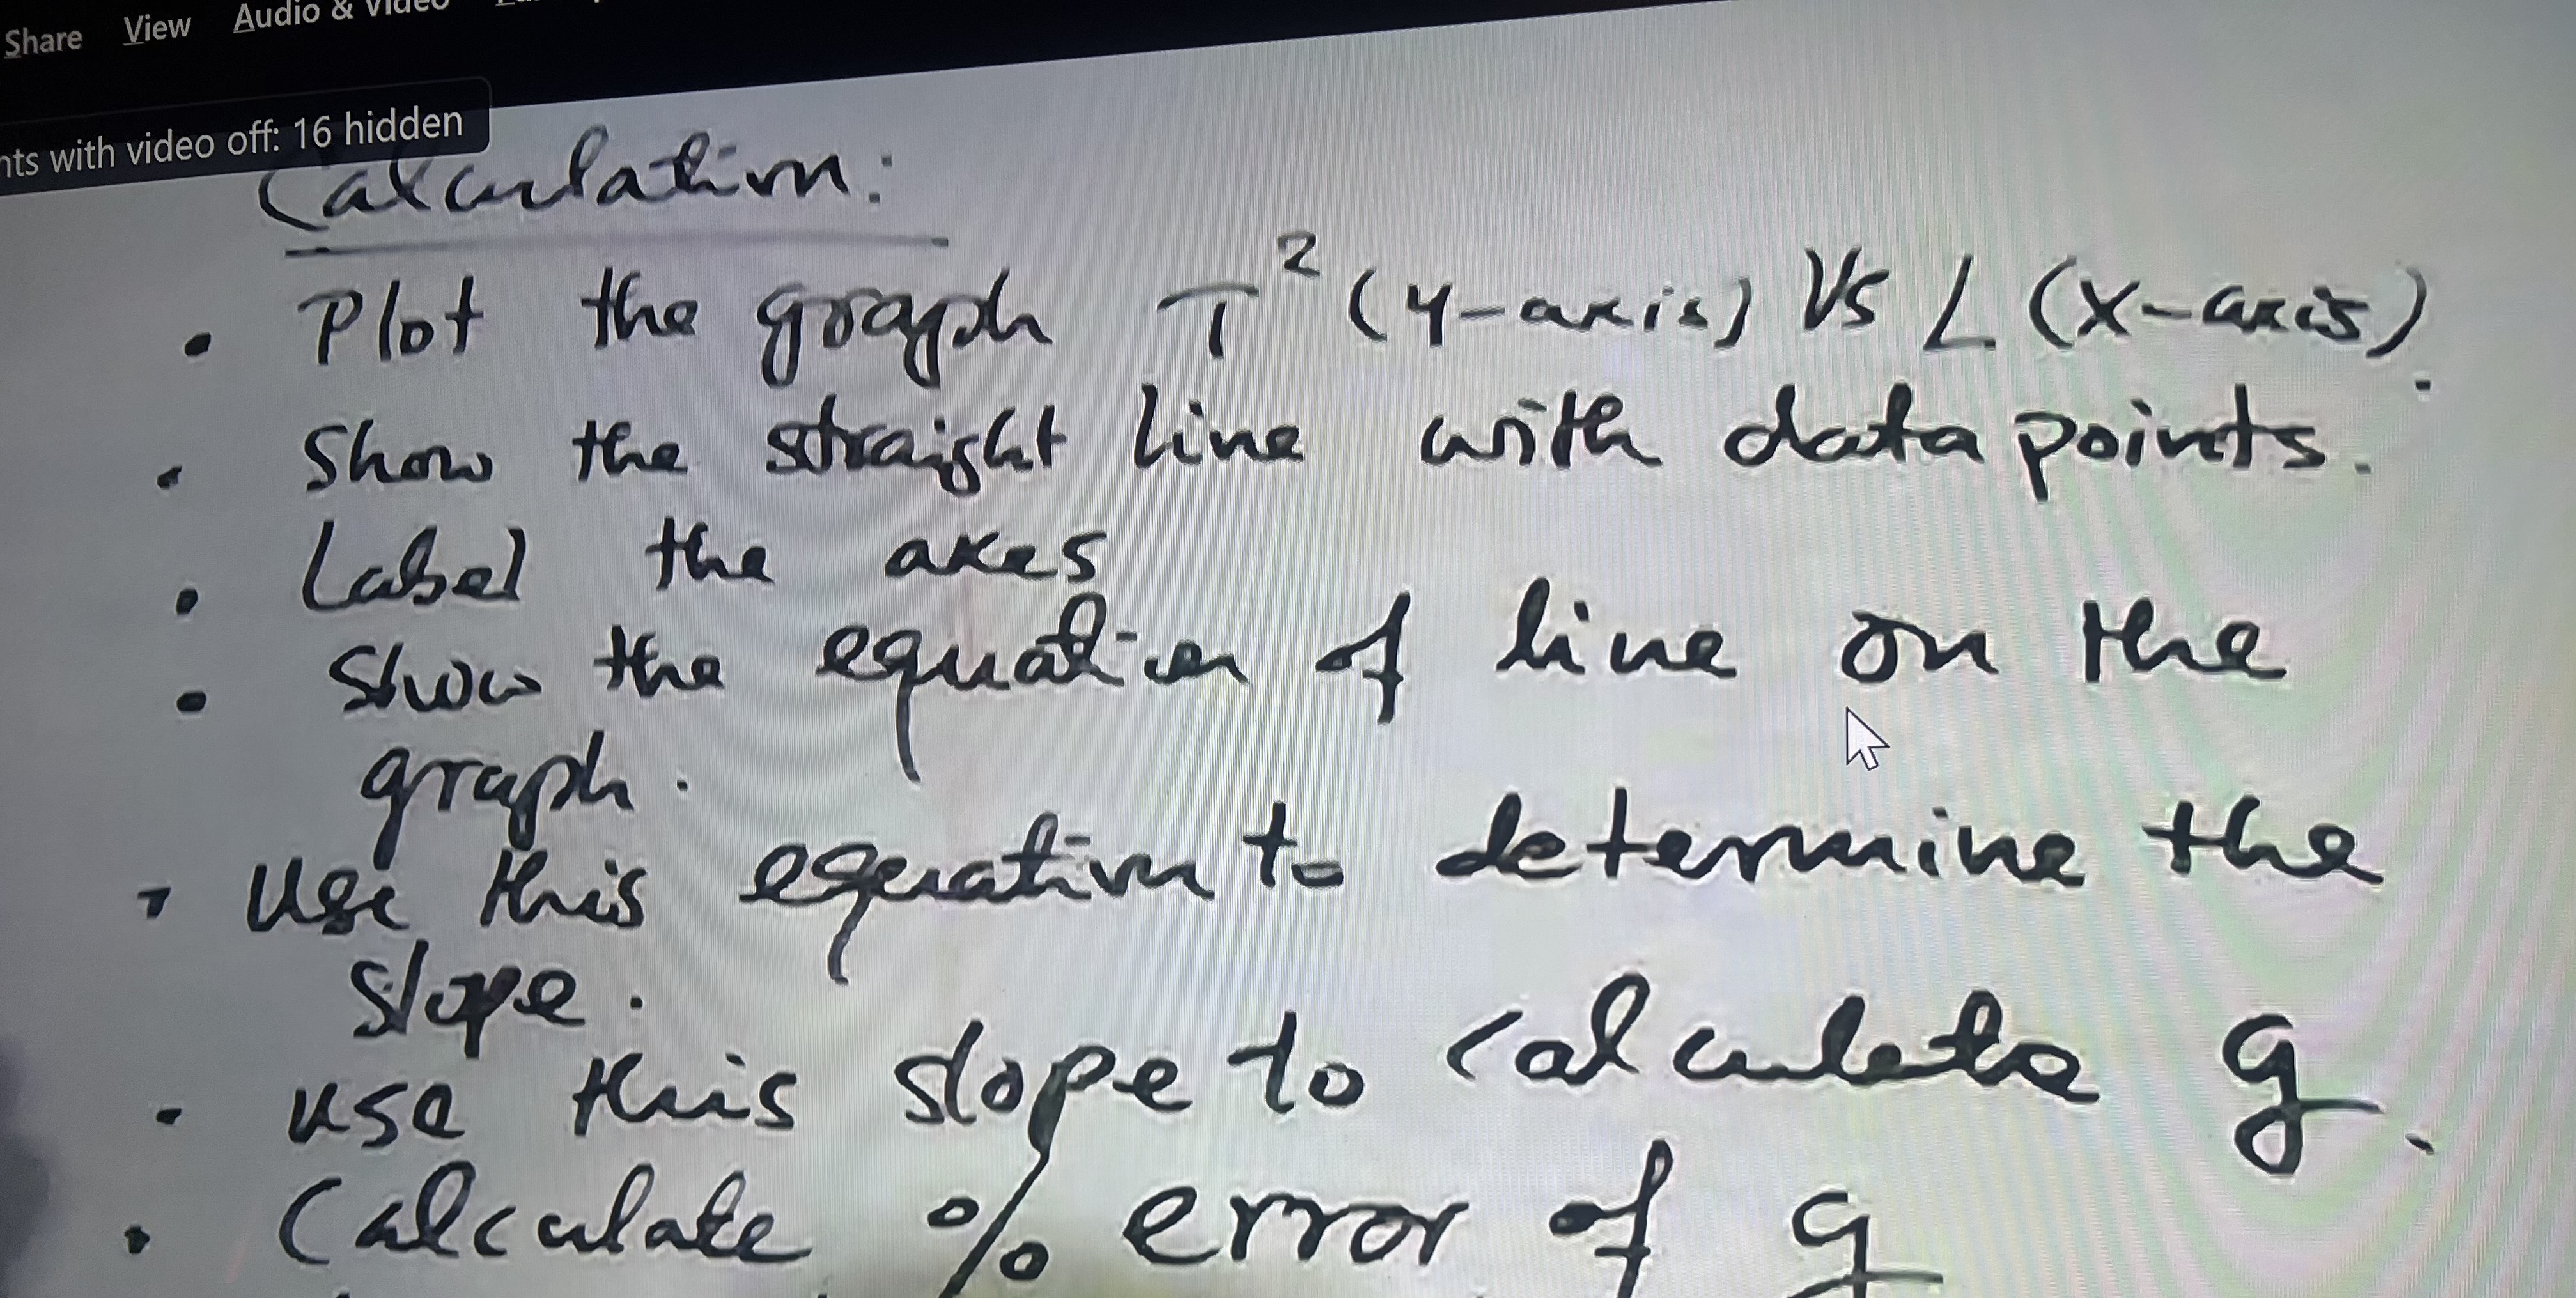 Share View Audio & Video
nts with video off: 16 hidden
Calculation:
• Plot the graph T² (Y-axis) Vs L (X-axis).
• Show the straight line with data points.
• Label the axes
• Show the equation of line on the
graph.
• Use this equation to determine the
slope.
• use this slope to calculate g.
• Calculate % error of g